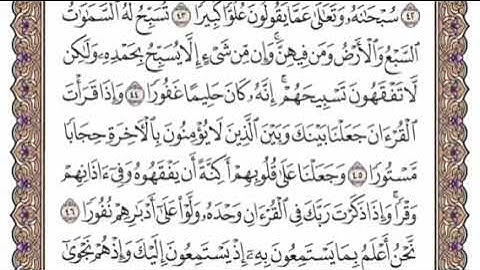 ٤٢ سُبْحَٰنَهُۥ وَتَعَٰلَىٰ عَمَّا يَقُولُونَ عُلُوًّا كَبِيرًا ٤٣ تُسَبِّحُ لَهُ ٱلسَّمَٰوَٰتُ
ٱلسَّبْعُ وَٱلْأَرْضُ وَمَن فِيهِنَّ ۚ وَإِن مِّن شَىْءٍ إِلَّا يُسَبِّحُ بِحَمْدِهِۦ وَلَٰكِن
لَّا تَفْقَهُونَ تَسْبِيحَهُمْ ۗ إِنَّهُۥ كَانَ حَلِيمًا غَفُورًا ٤٤ وَإِذَا قَرَأْتَ
ٱلْقُرْءَانَ جَعَلْنَا بَيْنَكَ وَبَيْنَ ٱلَّذِينَ لَا يُؤْمِنُونَ بِٱلْءَاخِرَةِ حِجَابًا
مَّسْتُورًا ٤٥ وَجَعَلْنَا عَلَىٰ قُلُوبِهِمْ أَكِنَّةً أَن يَفْقَهُوهُ وَفِىٓ ءَاذَانِهِمْ
وَقْرًا ۚ وَإِذَا ذَكَرْتَ رَبَّكَ فِى ٱلْقُرْءَانِ وَحْدَهُۥ وَلَّوْا۟ عَلَىٰٓ أَدْبَٰرِهِمْ نُفُورًا ٤٦
نَّحْنُ أَعْلَمُ بِمَا يَسْتَمِعُونَ بِهِۦٓ إِذْ يَسْتَمِعُونَ إِلَيْكَ وَإِذْ هُمْ نَجْوَىٰٓ